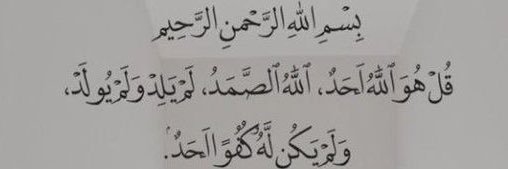 بِسْمِ اللهِ الرَّحْمنِ الرَّحِيمِ
قُلْ هُوَ ٱللَّهُ اَحَدٌ، اَللَّهُ ٱلصَّمَدُ، لَمْ يَلِدْ وَلَمْ يُولَدْ،
وَلَمْ يَكُن لَّهُ كُفُوًا اَحَدٌ.